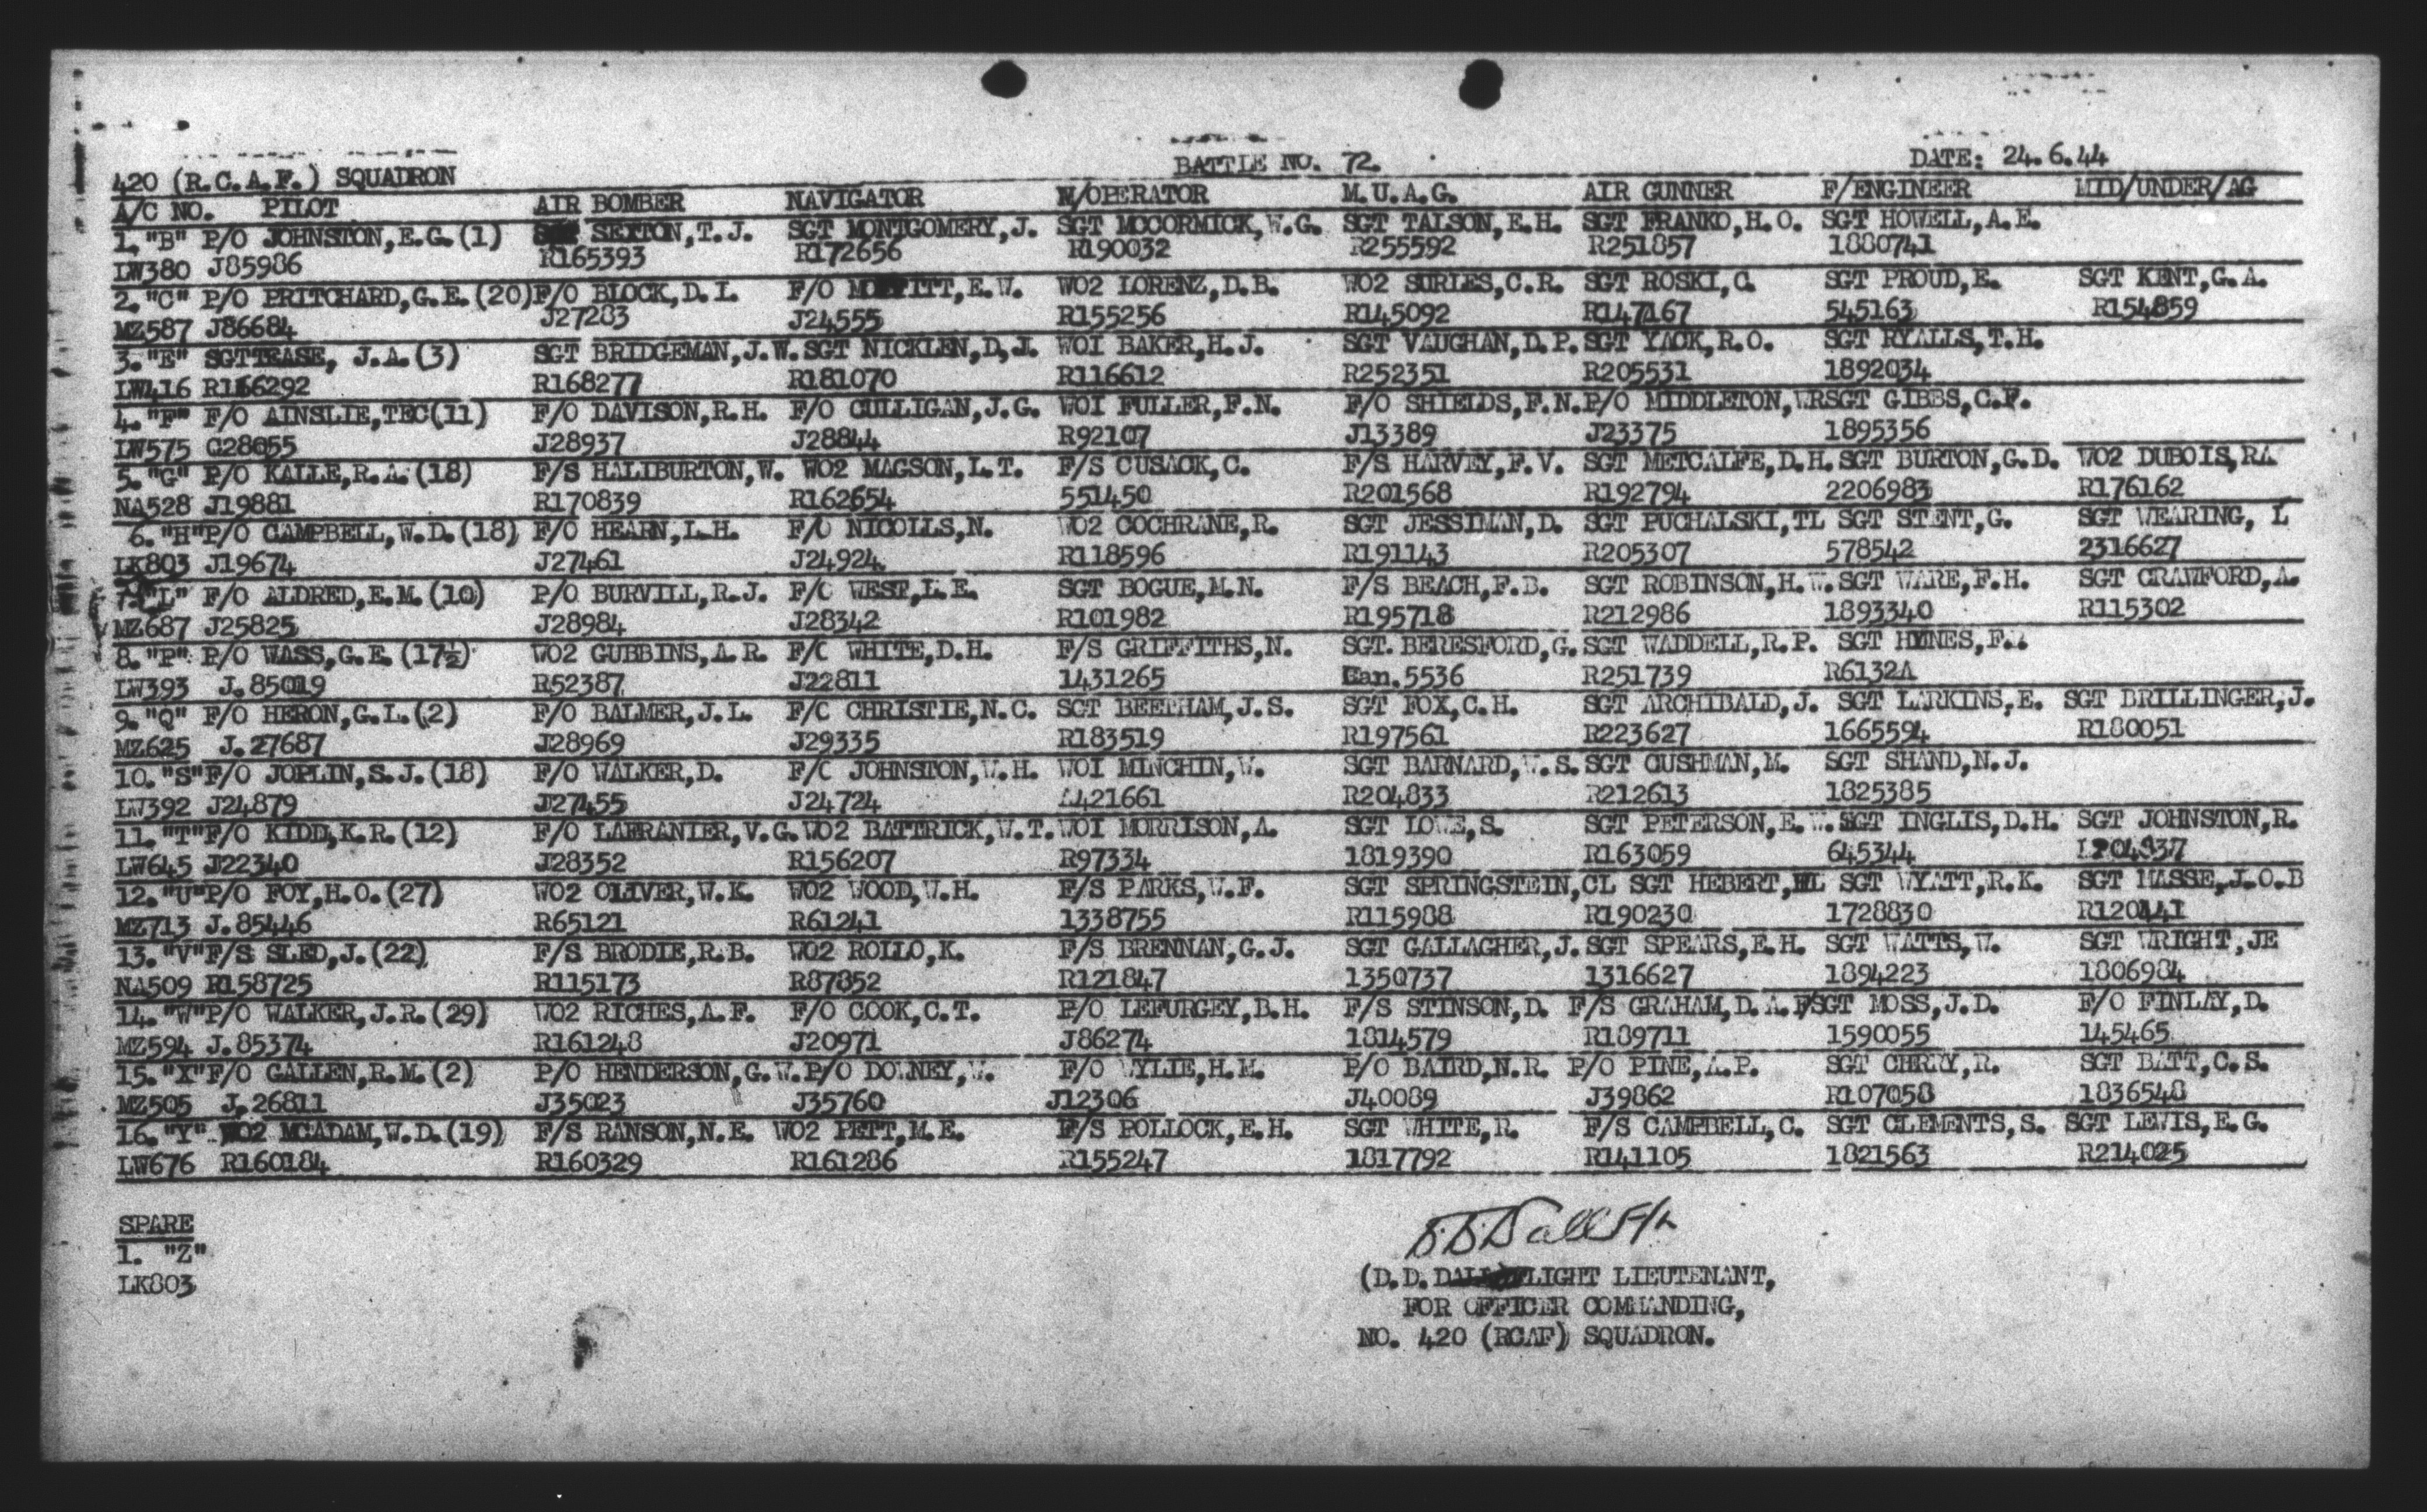 BATTLE NO. 72. DATE: 24.6.44
420 (R.C.A.F.) SQUADRON
A/C NO. PILOT AIR BOMBER NAVIGATOR W/OPERATOR M.U.A.G. AIR GUNNER F/ENGINEER MID/UNDER/AG
1. "B" P/O JOHNSTON,E.G.(1) SEXTON,T.J. SGT MONTGOMERY,J. SGT MCCORMICK,W.G. SGT TALSON,E.H. SGT FRANKO,H.O. SGT HOWELL,A.E.
LW380 J85986 R165393 R172656 R190032 R255592 R251857 1880741
2. "C" P/O PRITCHARD,G.E.(20) F/O BLOCK,D.I. F/O MOFFITT,E.W. WO2 LORENZ,D.B. WO2 SURLES,C.R. SGT ROSKI,C. SGT PROUD,E. SGT KENT,G.A.
MZ587 J86684 J27283 J24555 R155256 R145092 R147167 545163 R154859
3. "E" SGT TEASE, J.A.(3) SGT BRIDGEMAN,J.W. SGT NICKLEN,D,J. WO1 BAKER,H.J. SGT VAUGHAN,D.P. SGT YACK,R.O. SGT RYALLS,T.H.
LW416 R166292 R168277 R181070 R116612 R252351 R205531 1892034
4. "F" F/O AINSLIE,TEC(11) F/O DAVISON,R.H. F/O CULLIGAN,J.G. WO1 FULLER,F.N. F/O SHIELDS,F.N. P/O MIDDLETON,WR SGT GIBBS,C.F.
LW575 C28055 J28937 J28844 R92107 J13389 J23375 1895356
5. "G" P/O KALLE,R.A.(18) F/S HALIBURTON,W. WO2 MAGSON,L.T. F/S CUSACK,C. F/S HARVEY,F.V. SGT METCALFE,D.H. SGT BURTON,G.D. WO2 DUBOIS,RA
NA528 J19881 R170839 R162654 551450 R201568 R192794 2206983 R176162
6. "H" P/O CAMPBELL,W.D.(18) F/O HEARN,L.H. F/O NICOLLS,N. WO2 COCHRANE,R. SGT JESSIMAN,D. SGT PUCHALSKI,TL SGT STENT,G. SGT WEARING, L
LK803 J19674 J27461 J24924 R118596 R191143 R205307 578542 2316627
7. "L" F/O ALDRED,E.M.(10) P/O BURVILL,R.J. F/O WEST,L.E. SGT BOGUE,M.N. F/S BEACH,F.B. SGT ROBINSON,H.W. SGT WARE,F.H. SGT CRAWFORD,A.
MZ687 J25825 J28984 J28342 R101982 R195718 R212986 1893340 R115302
8. "P" P/O WASS,G.E.(17½) WO2 GUBBINS,A.R. F/O WHITE,D.H. F/S GRIFFITHS,N. SGT. BERESFORD,G. SGT WADDELL,R.P. SGT HYNES,F.
LW393 J.85019 R52387 J22811 1431265 Can.5536 R251739 R6132A
9. "Q" F/O HERON,G.L.(2) F/O BALMER,J.L. F/O CHRISTIE,N.C. SGT BEETHAM,J.S. SGT FOX,C.H. SGT ARCHIBALD,J. SGT LARKINS,E. SGT BRILLINGER,J.
MZ625 J.27687 J28969 J29335 R183519 R197561 R223627 1665594 R180051
10. "S" F/O JOPLIN,S.J.(18) F/O WALKER,D. F/O JOHNSTON,W.H. WO1 MINCHIN,W. SGT BARNARD,W.S. SGT CUSHMAN,M. SGT SHAND,N.J.
LW392 J24879 J27455 J24724 A421661 R204833 R212613 1825385
11. "T" F/O KIDD,K.R.(12) F/O LAFRANIER,V.G. WO2 BATTRICK,W.T. WO1 MORRISON,A. SGT LOWE,S. SGT PETERSON,E.W. SGT INGLIS,D.H. SGT JOHNSTON,R.
LW645 J22340 J28352 R156207 R97334 1819390 R163059 645344
12. "U" P/O FOY,H.O.(27) WO2 OLIVER,W.K. WO2 WOOD,W.H. F/S PARKS,W.F. SGT SPRINGSTEIN,CL SGT HEBERT, SGT WYATT,R.K. SGT MASSE,J.O.B
MZ713 J.85446 R65121 R61241 1338755 R115988 R190230 1728830 R120441
13. "V" F/S SLED,J.(22) F/S BRODIE,R.B. WO2 ROLLO,K. F/S BRENNAN,G.J. SGT GALLAGHER,J. SGT SPEARS,E.H. SGT WATTS,W. SGT WRIGHT,JE
NA509 R158725 R115173 R87852 R121847 1350737 1316627 1894223 1806984
14. "W" P/O WALKER,J.R.(29) WO2 RICHES,A.F. F/O COOK,C.T. P/O LEFURGEY,B.H. F/S STINSON,D. F/S GRAHAM,D.A.F. SGT MOSS,J.D. F/O FINLAY,D.
MZ594 J.85374 R161248 J20971 J86274 1814579 R189711 1590055 145465
15. "X" F/O GALLEN,R.M.(2) P/O HENDERSON,G.W. P/O DOWNEY,W. F/O WYLIE,H.M. P/O BAIRD,N.R. P/O PINE,A.P. SGT CHERRY,R. SGT BATT,C.S.
MZ505 J.26811 J35023 J35760 J12306 J40089 J39862 R107058 1836548
16. "Y" WO2 MCADAM,W.D.(19) F/S RANSON,N.E. WO2 PETT,M.E. F/S POLLOCK,E.H. SGT WHITE,R. F/S CAMPBELL,C. SGT CLEMENTS,S. SGT LEWIS,E.G.
LW676 R160184 R160329 R161286 R155247 1817792 R141105 1821563 R214025
SPARE
1. "Z"
LK803
D.D. Dall F/L
(D.D. DALL) FLIGHT LIEUTENANT,
FOR OFFICER COMMANDING,
NO. 420 (RCAF) SQUADRON.